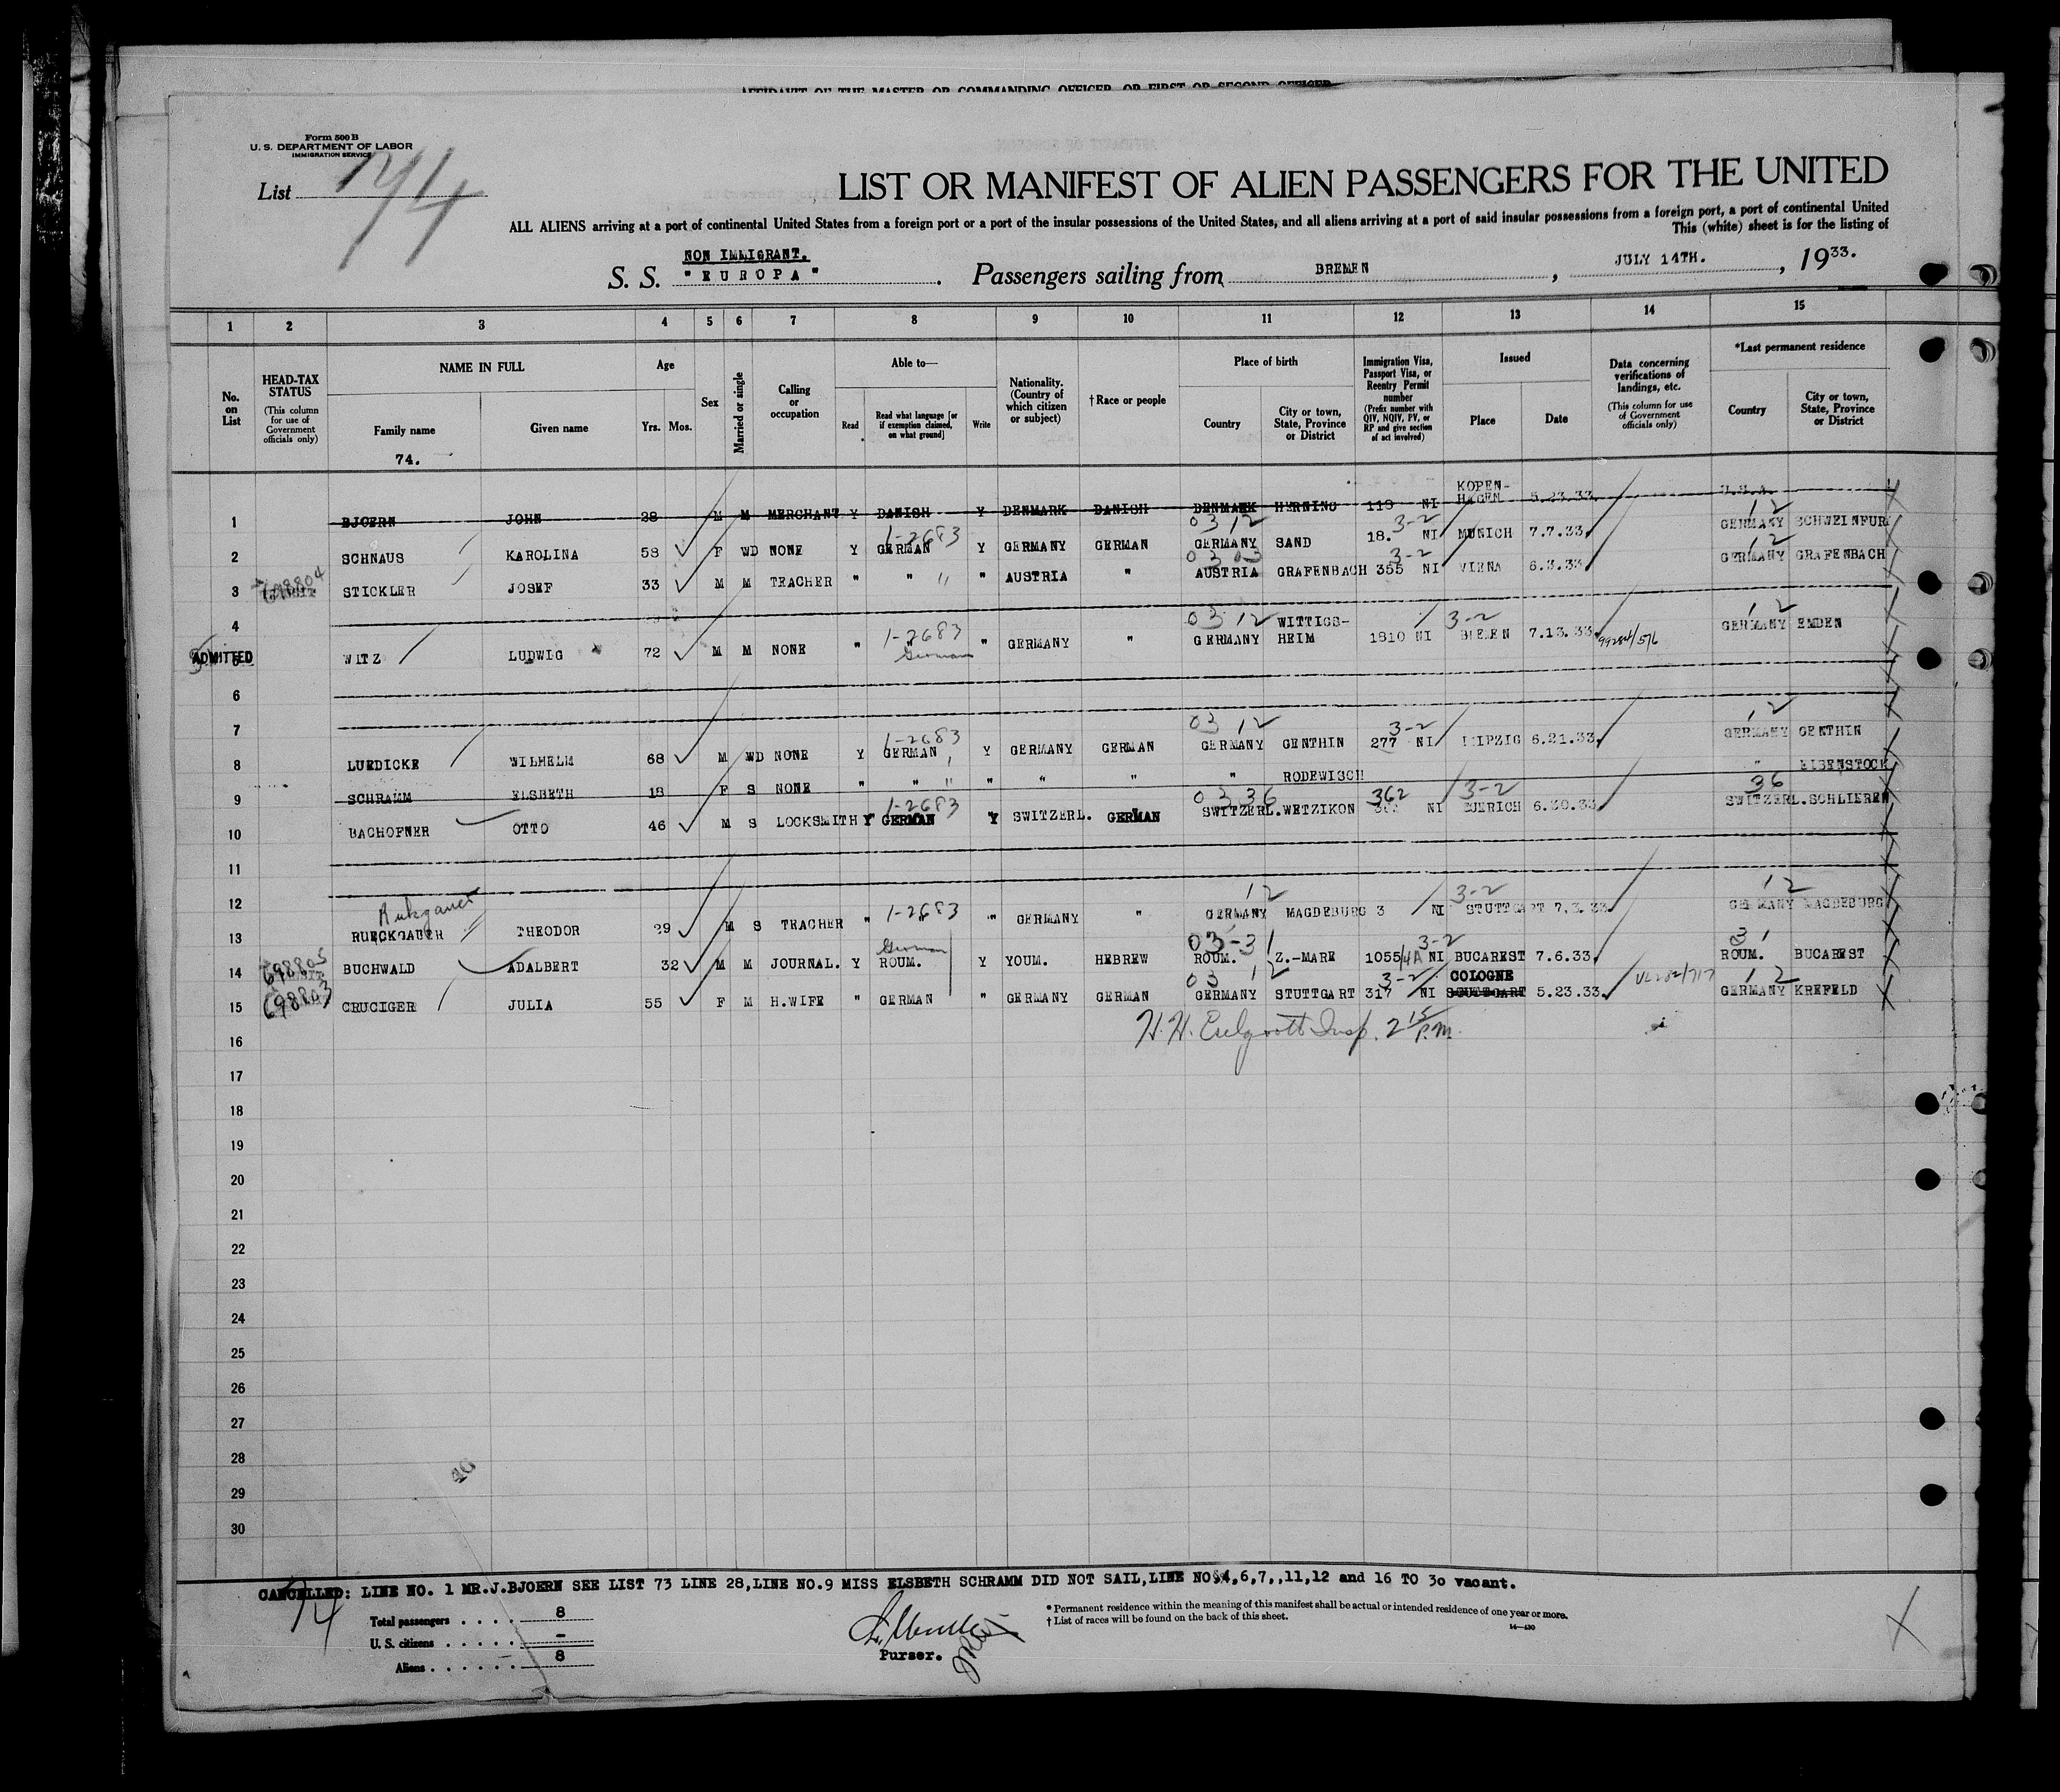 AFFIDAVIT OF THE MASTER OR COMMANDING OFFICER, OR FIRST OR SECOND OFFICER
Form 500 B
U. S. DEPARTMENT OF LABOR
IMMIGRATION SERVICE
List 74
LIST OR MANIFEST OF ALIEN PASSENGERS FOR THE UNITED
ALL ALIENS arriving at a port of continental United States from a foreign port or a port of the insular possessions of the United States, and all aliens arriving at a port of said insular possessions from a foreign port, a port of continental United
This (white) sheet is for the listing of
NON IMMIGRANT.
S. S. "EUROPA". Passengers sailing from BREMEN, JULY 14TH., 1933.
1 2 3 4 5 6 7 8 9 10 11 12 13 14 15
No. on List
HEAD-TAX STATUS (This column for use of Government officials only)
NAME IN FULL
Family name
74.
Given name
Age
Yrs. Mos.
Sex
Married or single
Calling or occupation
Able to—
Read
Read what language [or if exemption claimed, on what ground]
Write
Nationality. (Country of which citizen or subject)
†Race or people
Place of birth
Country
City or town, State, Province or District
Immigration Visa, Passport Visa, or Reentry Permit number (Prefix number with QIV, NQIV, PV, or RP and give section of act involved)
Issued
Place
Date
Data concerning verifications of landings, etc. (This column for use of Government officials only)
*Last permanent residence
Country
City or town, State, Province or District
1 BJOERN JOHN 28 M M MERCHANT Y DANISH Y DENMARK DANISH DENMARK HERNING 119 NI KOPEN-HAGEN 5.23.33. U.S.A.
03 12 1-2683 3-2 12
2 SCHNAUS KAROLINA 58 F WD NONE Y GERMAN Y GERMANY GERMAN GERMANY SAND 18. NI MUNICH 7.7.33 GERMANY SCHWEINFUR
03 03 3-2 12
3 698804 STICKLER JOSEF 33 M M TEACHER " " " " AUSTRIA " AUSTRIA GRAFENBACH 355 NI VIENA 6.3.33 GERMANY GRAFENBACH
4
03 12 1-2683 3-2 12
ADMITTED 5 WITZ LUDWIG 72 M M NONE " German " GERMANY " GERMANY WITTIGS-HEIM 1810 NI BREMEN 7.13.33. 99284/576 GERMANY EMDEN
6
7
03 12 1-2683 3-2 12
8 LUEDICKE WILHELM 68 M WD NONE Y GERMAN Y GERMANY GERMAN GERMANY GENTHIN 277 NI LEIPZIG 6.21.33. GERMANY GENTHIN
9 SCHRAMM ELSBETH 18 F S NONE " " " " " " " RODEWISCH " EIBENSTOCK
03 36 1-2683 362 3-2 36
10 BACHOFNER OTTO 46 M S LOCKSMITH Y GERMAN Y SWITZERL. GERMAN SWITZERL. WETZIKON NI ZUERICH 6.30.33 SWITZERL. SCHLIEREN
11
12
12 1-2683 3-2 12
13 RUECKGAUER THEODOR 29 M S TEACHER " " " GERMANY " GERMANY MAGDEBURG 3 NI STUTTGART 7.3.33 GERMANY MAGDEBURG
03-31 German 3-2 31
14 698805 BUCHWALD ADALBERT 32 M M JOURNAL. Y ROUM. Y YOUM. HEBREW ROUM. Z.-MARE 1055/4A NI BUCAREST 7.6.33. ROUM. BUCAREST
03 12 3-2 COLOGNE 12
15 698803 CRUCIGER JULIA 55 F M H.WIFE " GERMAN " GERMANY GERMAN GERMANY STUTTGART 317 NI STUTTGART 5.23.33. GERMANY KREFELD
16 Insp. 2 15 P.M.
17
18
19
20
21
22
23
24
25
26
27
28
29
30
CANCELLED: LINE NO. 1 MR.J.BJOERN SEE LIST 73 LINE 28,LINE NO.9 MISS ELSBETH SCHRAMM DID NOT SAIL,LINE NO.4,6,7,,11,12 and 16 TO 30 vacant.
74
Total passengers . . . . 8
U. S. citizens . . . . . –
Aliens . . . . . . 8
Purser.
* Permanent residence within the meaning of this manifest shall be actual or intended residence of one year or more.
† List of races will be found on the back of this sheet.
14—430